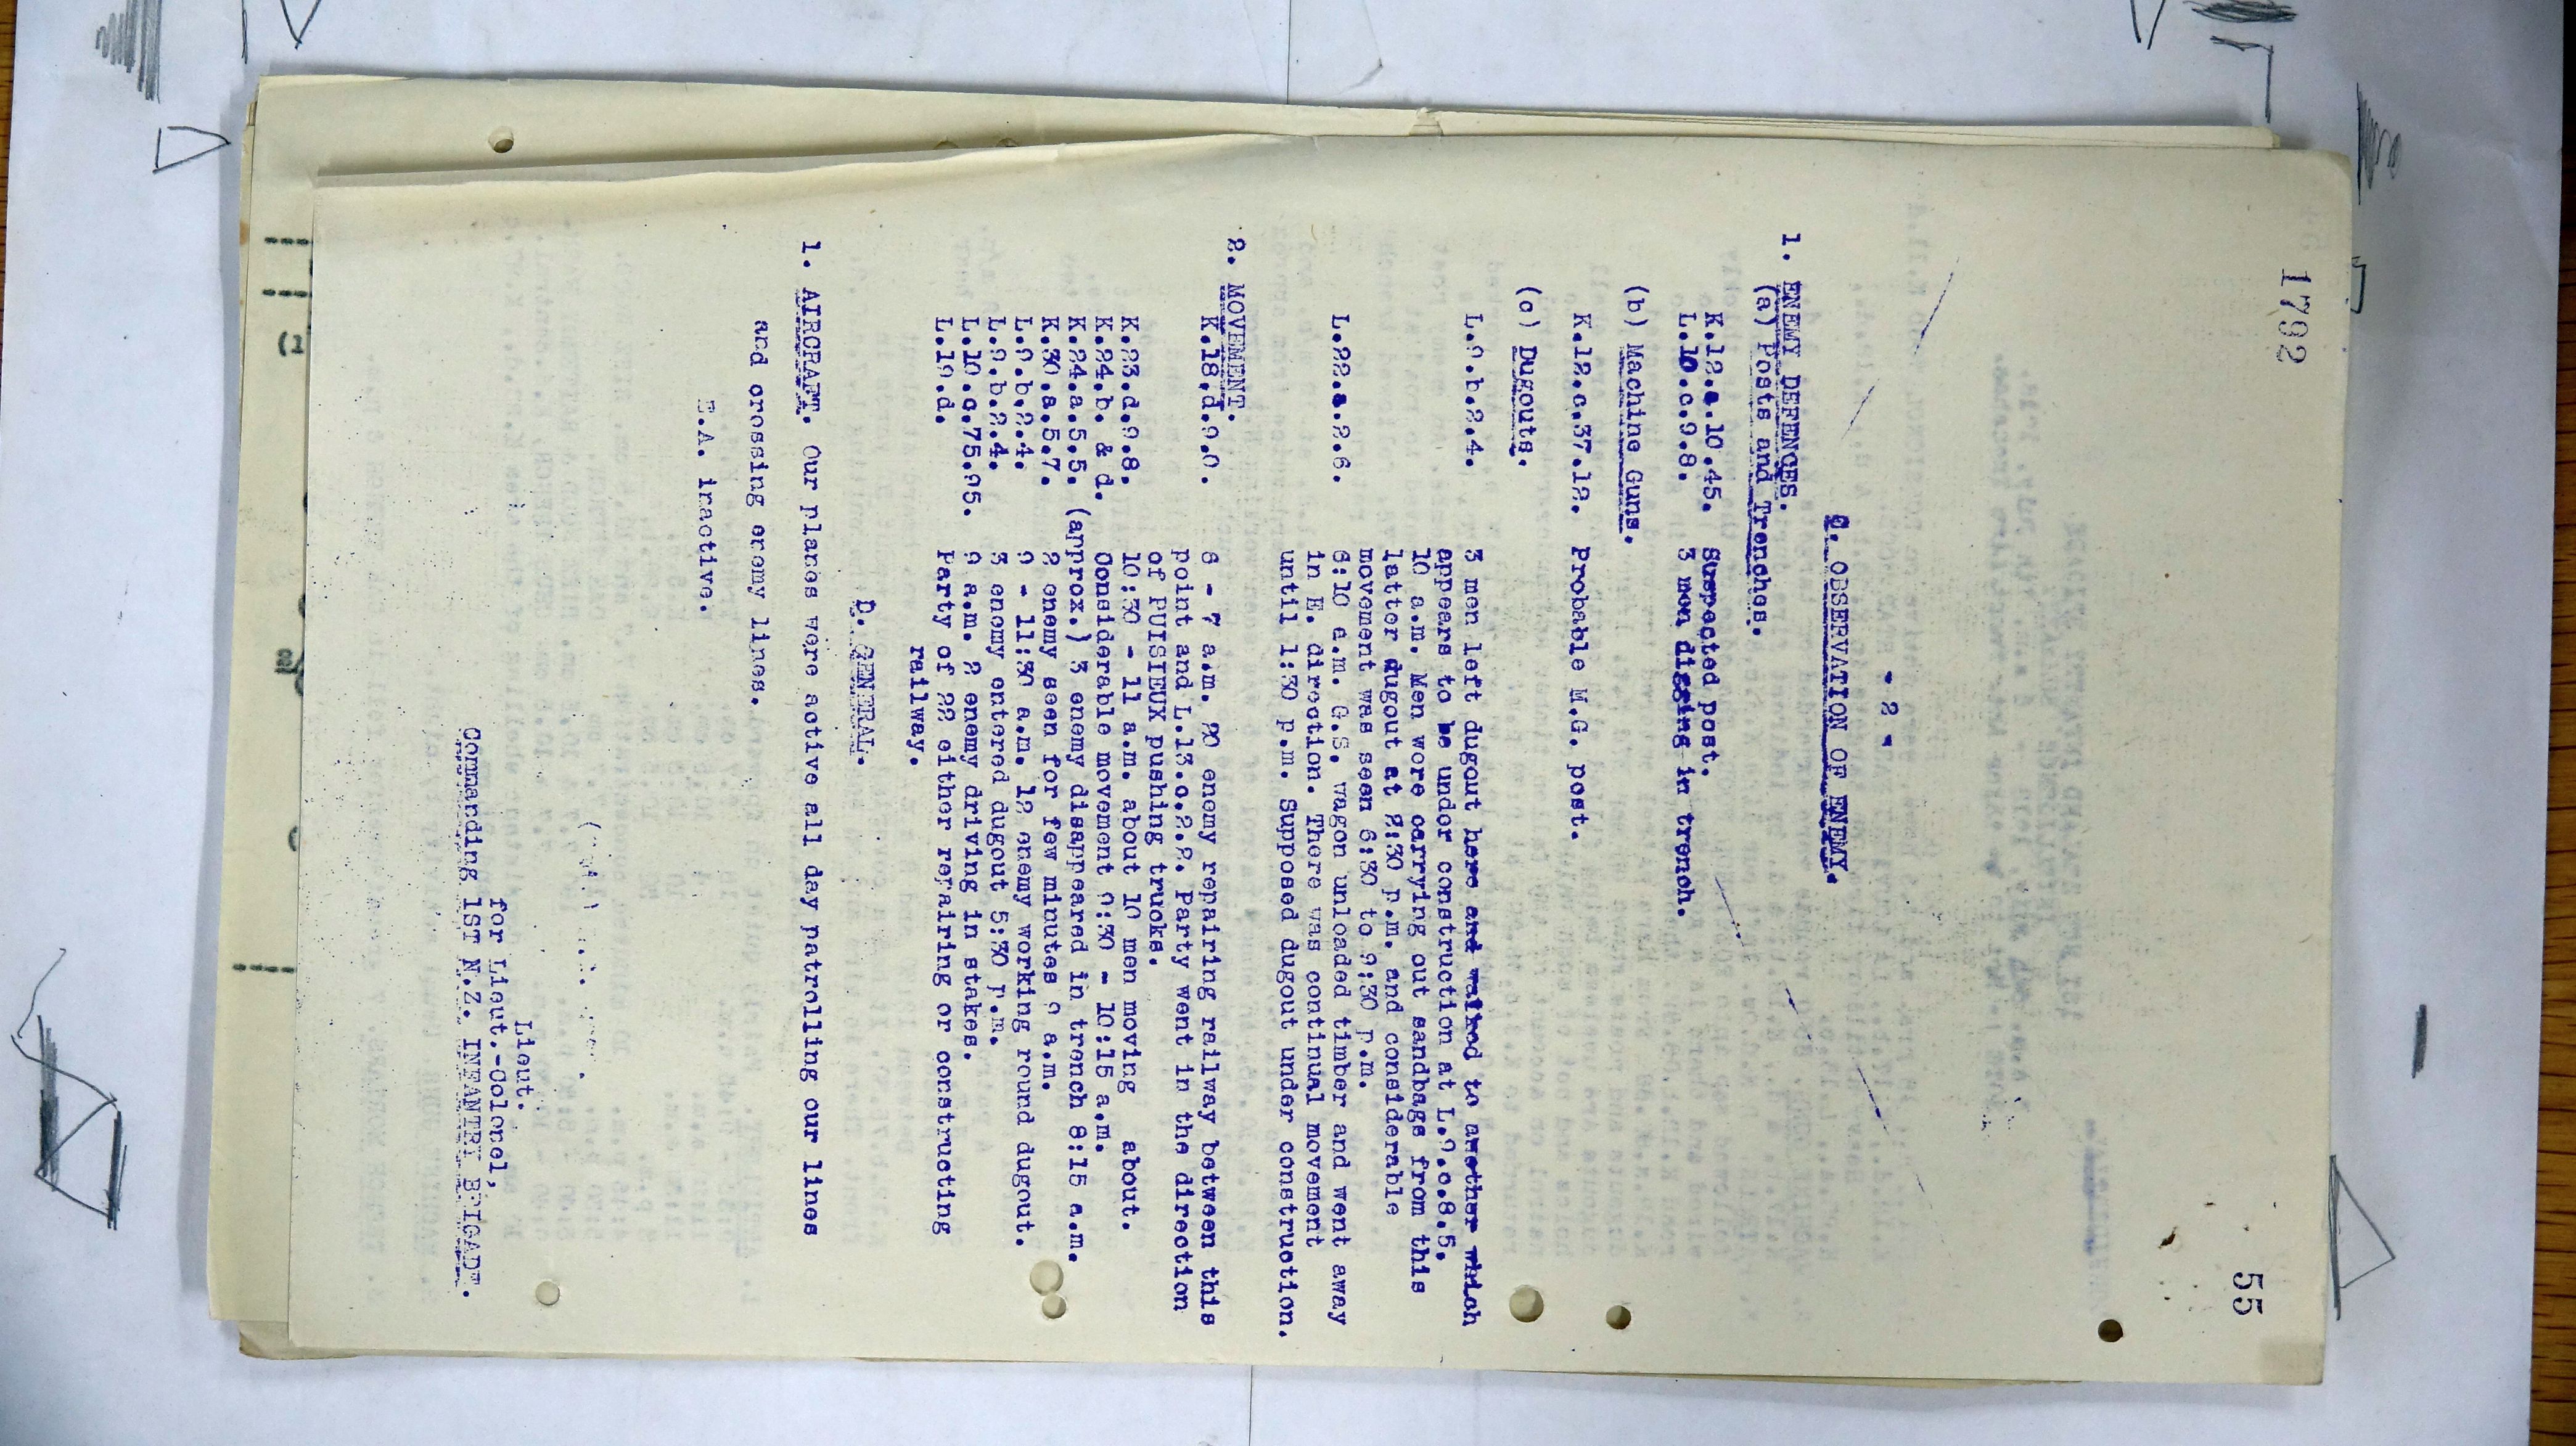 1792
55
- 2 -
C. OBSERVATION OF ENEMY.
1. ENEMY DEFENCES.
(a) Posts and Trenches.
K.12.a.10.45. Suspected post.
L.10.c.9.8. 3 men digging in trench.
(b) Machine Guns.
K.12.c.37.12. Probable M.G. post.
(c) Dugouts.
L.9.b.2.4. 3 men left dugout here and walked to another which
appears to be under construction at L.9.c.8.5.
10 a.m. Men wore carrying out sandbags from this
latter dugout at 2:30 P.m. and considerable
movement was seen 6:30 to 9:30 P.m.
L.22.a.2.6. 6:10 a.m. G.S. wagon unloaded timber and went away
in E. direction. There was continual movement
until 1:30 p.m. Supposed dugout under construction.
2. MOVEMENT.
K.18.d.9.0. 6 - 7 a.m. 20 enemy repairing railway between this
point and L.13.c.2.2. Party went in the direction
of PUISIEUX pushing trucks.
K.23.d.9.8. 10:30 - 11 a.m. about 10 men moving about.
K.24.b. & d. Considerable movement 9:30 - 10:15 a.m.
K.24.a.5.5. (approx.) 3 enemy disappeared in trench 8:15 a.m.
K.30.a.5.7. 2 enemy seen for few minutes 9 a.m.
L.9.b.2.4. 9 - 11:30 a.m. 12 enemy working round dugout.
L.9.b.2.4. 3 enemy entered dugout 5:30 P.m.
L.10.c.75.95. 9 a.m. 2 enemy driving in stakes.
L.19.d. Party of 22 either repairing or constructing
railway.
D. GENERAL.
1. AIRCRAFT. Our planes were active all day patrolling our lines
and crossing enemy lines.
E.A. inactive.
Lieut.
for Lieut.-Colonel,
Commanding 1ST N.Z. INFANTRY BRIGADE.